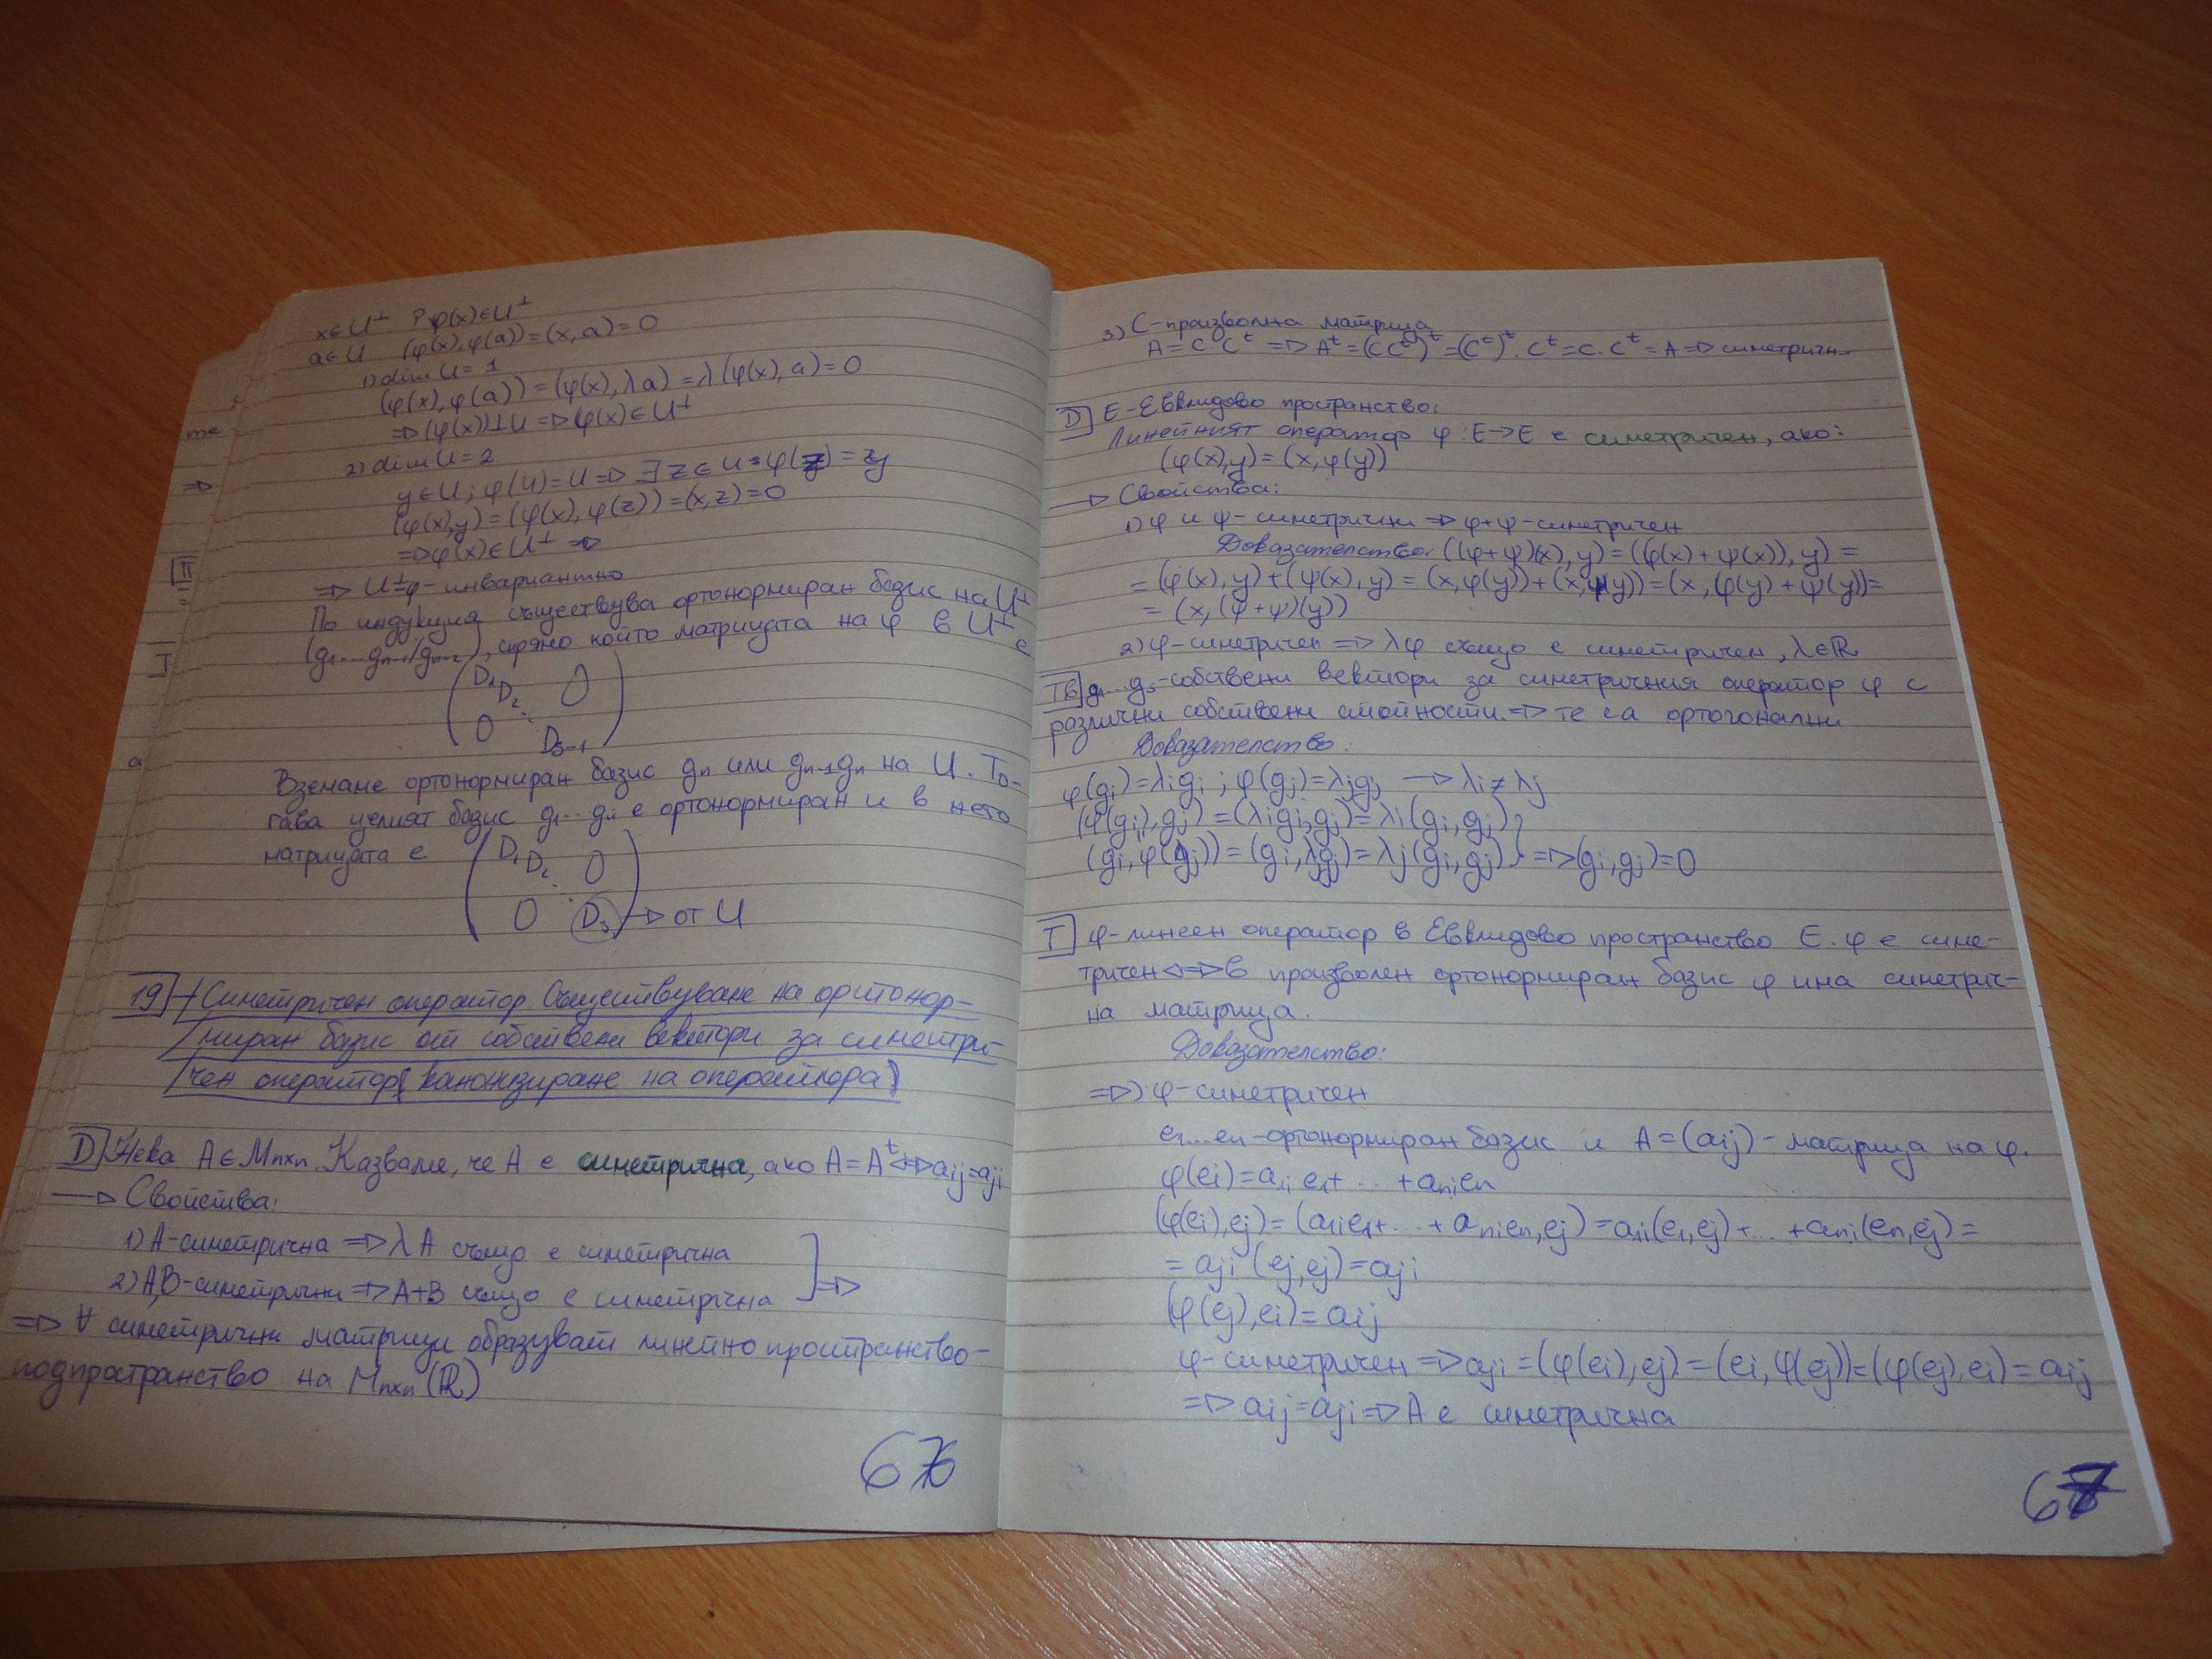 x∈U⊥ ? φ(x)∈U⊥
a∈U (φ(x), φ(a)) = (x, a) = 0
1) dim U = 1
(φ(x), φ(a)) = (φ(x), λa) = λ(φ(x), a) = 0
=> (φ(x)) ⊥ U => φ(x) ∈ U⊥
2) dim U = 2
y∈U; φ(U) = U => ∃ z ∈ U : φ(z) = y
(φ(x), y) = (φ(x), φ(z)) = (x, z) = 0
=> φ(x) ∈ U⊥ =>
=> U⊥ φ-инвариантно
По индукция съществува ортонормиран базис на U⊥
(g1...gn-1/gn-2), спрямо който матрицата на φ в U⊥ е
D1
D2 0
0 Ds-1
Вземаме ортонормиран базис gn или gn-1 gn на U. То-
гава целият базис g1...gn е ортонормиран и в него
матрицата е
D1 D2 0
0 Ds → от U
19 Симетричен оператор. Съществуване на ортонор-
миран базис от собствени вектори за симетри-
чен оператор (канонизиране на оператора)
D Нека A ∈ Mnxn. Казваме, че A е симетрична, ако A = Aᵗ <=> aij = aji
→ Свойства:
1) A-симетрична => λA също е симетрична
2) A,B-симетрични => A+B също е симетрична ] =>
=> ∀ симетрични матрици образуват линейно пространство -
подпространство на Mnxn (R)
66
3) C-произволна матрица
A = C.Cᵗ => Aᵗ = (CCᵗ)ᵗ = (Cᵗ)ᵗ . Cᵗ = C.Cᵗ = A => симетричн
D E - Евклидово пространство.
Линейният оператор φ : E→E е симетричен, ако:
(φ(x), y) = (x, φ(y))
→ Свойства:
1) φ и ψ - симетрични => φ+ψ - симетричен
Доказателство: ((φ+ψ)(x), y) = (φ(x) + ψ(x)), y) =
= (φ(x), y) + (ψ(x), y) = (x, φ(y)) + (x, ψ(y)) = (x, (φ(y) + ψ(y)) =
= (x, (φ+ψ)(y))
2) φ-симетричен => λφ също е симетричен, λ∈R
Тв g1...gs - собствени вектори за симетричния оператор φ с
различни собствени стойности => те са ортогонални
Доказателство:
φ(gi) = λigi ; φ(gj) = λjgj → λi ≠ λj
(φ(gi), gj) = (λigi, gj) = λi(gi, gj)
(gi, φ(gj)) = (gi, λjgj) = λj(gi, gj) } => (gi, gj) = 0
T φ-линеен оператор в Евклидово пространство E. φ е симе-
тричен <=> в произволен ортонормиран базис φ има симетрич-
на матрица.
Доказателство:
=>) φ-симетричен
e1...en - ортонормиран базис и A = (aij) - матрица на φ.
φ(ei) = a1i e1 + ... + ani en
(φ(ei), ej) = (a1ie1 + ... + anien, ej) = a1i(e1, ej) + ... + ani(en, ej) =
= aji (ej, ej) = aji
(φ(ej), ei) = aij
φ-симетричен => aji = (φ(ei), ej) = (ei, φ(ej)) = (φ(ej), ei) = aij
=> aij = aji => A е симетрична
67